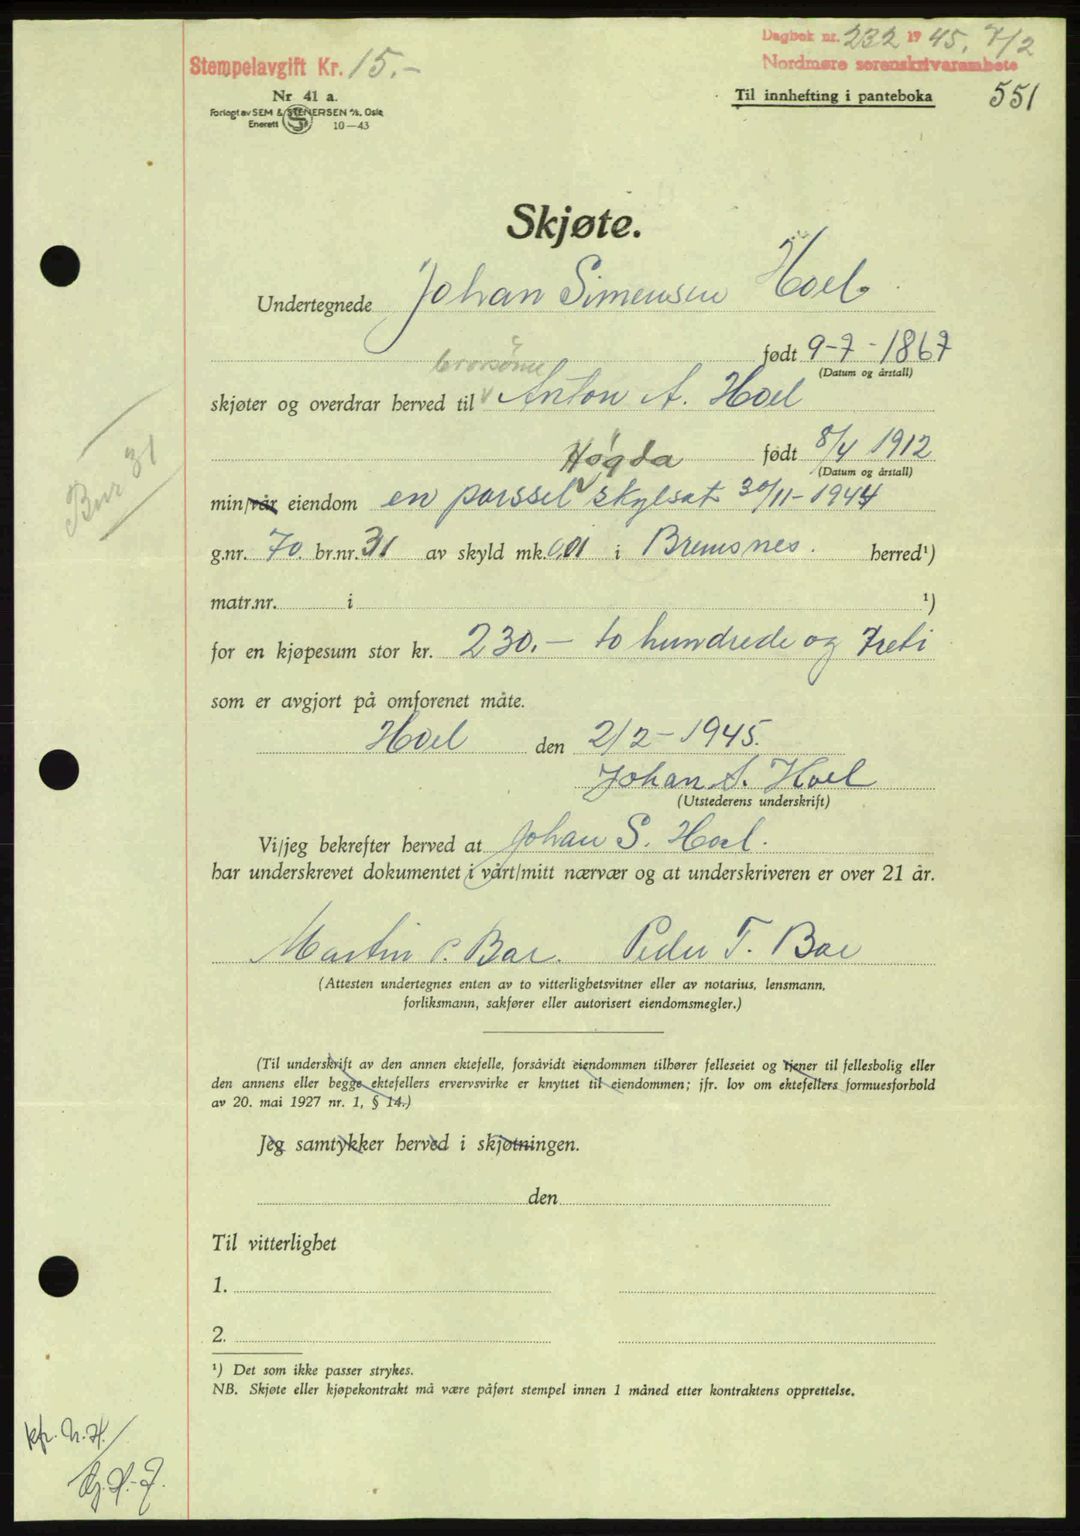 Stempelavgift Kr. 15.-
Dagbok nr. 232 1945, 7/2
Nordmøre sorenskrivarambete
Nr 41 a.
Forlagt av SEM & STENERSEN A/S, Oslo
Enerett 10—43
Til innhefting i panteboka 551
Skjøte.
Undertegnede Johan Simensen Hoel
født 9-7-1867
(Datum og årstall)
brorsønn
skjøter og overdrar herved til Anton A. Hoel
født 8/4 1912
(Datum og årstall)
Høgda
min/vår eiendom en parssel skylsat 30/11-1944
g.nr. 70. br.nr. 31 av skyld mk. 0,01 i Bremsnes. herred¹)
matr.nr. i ¹)
for en kjøpesum stor kr. 230.- to hundrede og treti
som er avgjort på omforenet måte.
Hoel den 2/2-1945.
Johan S. Hoel
(Utstederens underskrift)
Vi/jeg bekrefter herved at Johan S. Hoel.
har underskrevet dokumentet i vårt/mitt nærvær og at underskriveren er over 21 år.
Martin P. Bae. Peder T. Bae
(Attesten undertegnes enten av to vitterlighetsvitner eller av notarius, lensmann,
forliksmann, sakfører eller autorisert eiendomsmegler.)
(Til underskrift av den annen ektefelle, forsåvidt eiendommen tilhører felleseiet og tjener til fellesbolig eller
den annens eller begge ektefellers ervervsvirke er knyttet til eiendommen; jfr. lov om ektefellers formuesforhold
av 20. mai 1927 nr. 1, § 14.)
Jeg samtykker herved i skjøtningen.
den
Til vitterlighet
1.
2.
¹) Det som ikke passer strykes.
NB. Skjøte eller kjøpekontrakt må være påført stempel innen 1 måned etter kontraktens opprettelse.
Bnr 31
kfr. N.H.